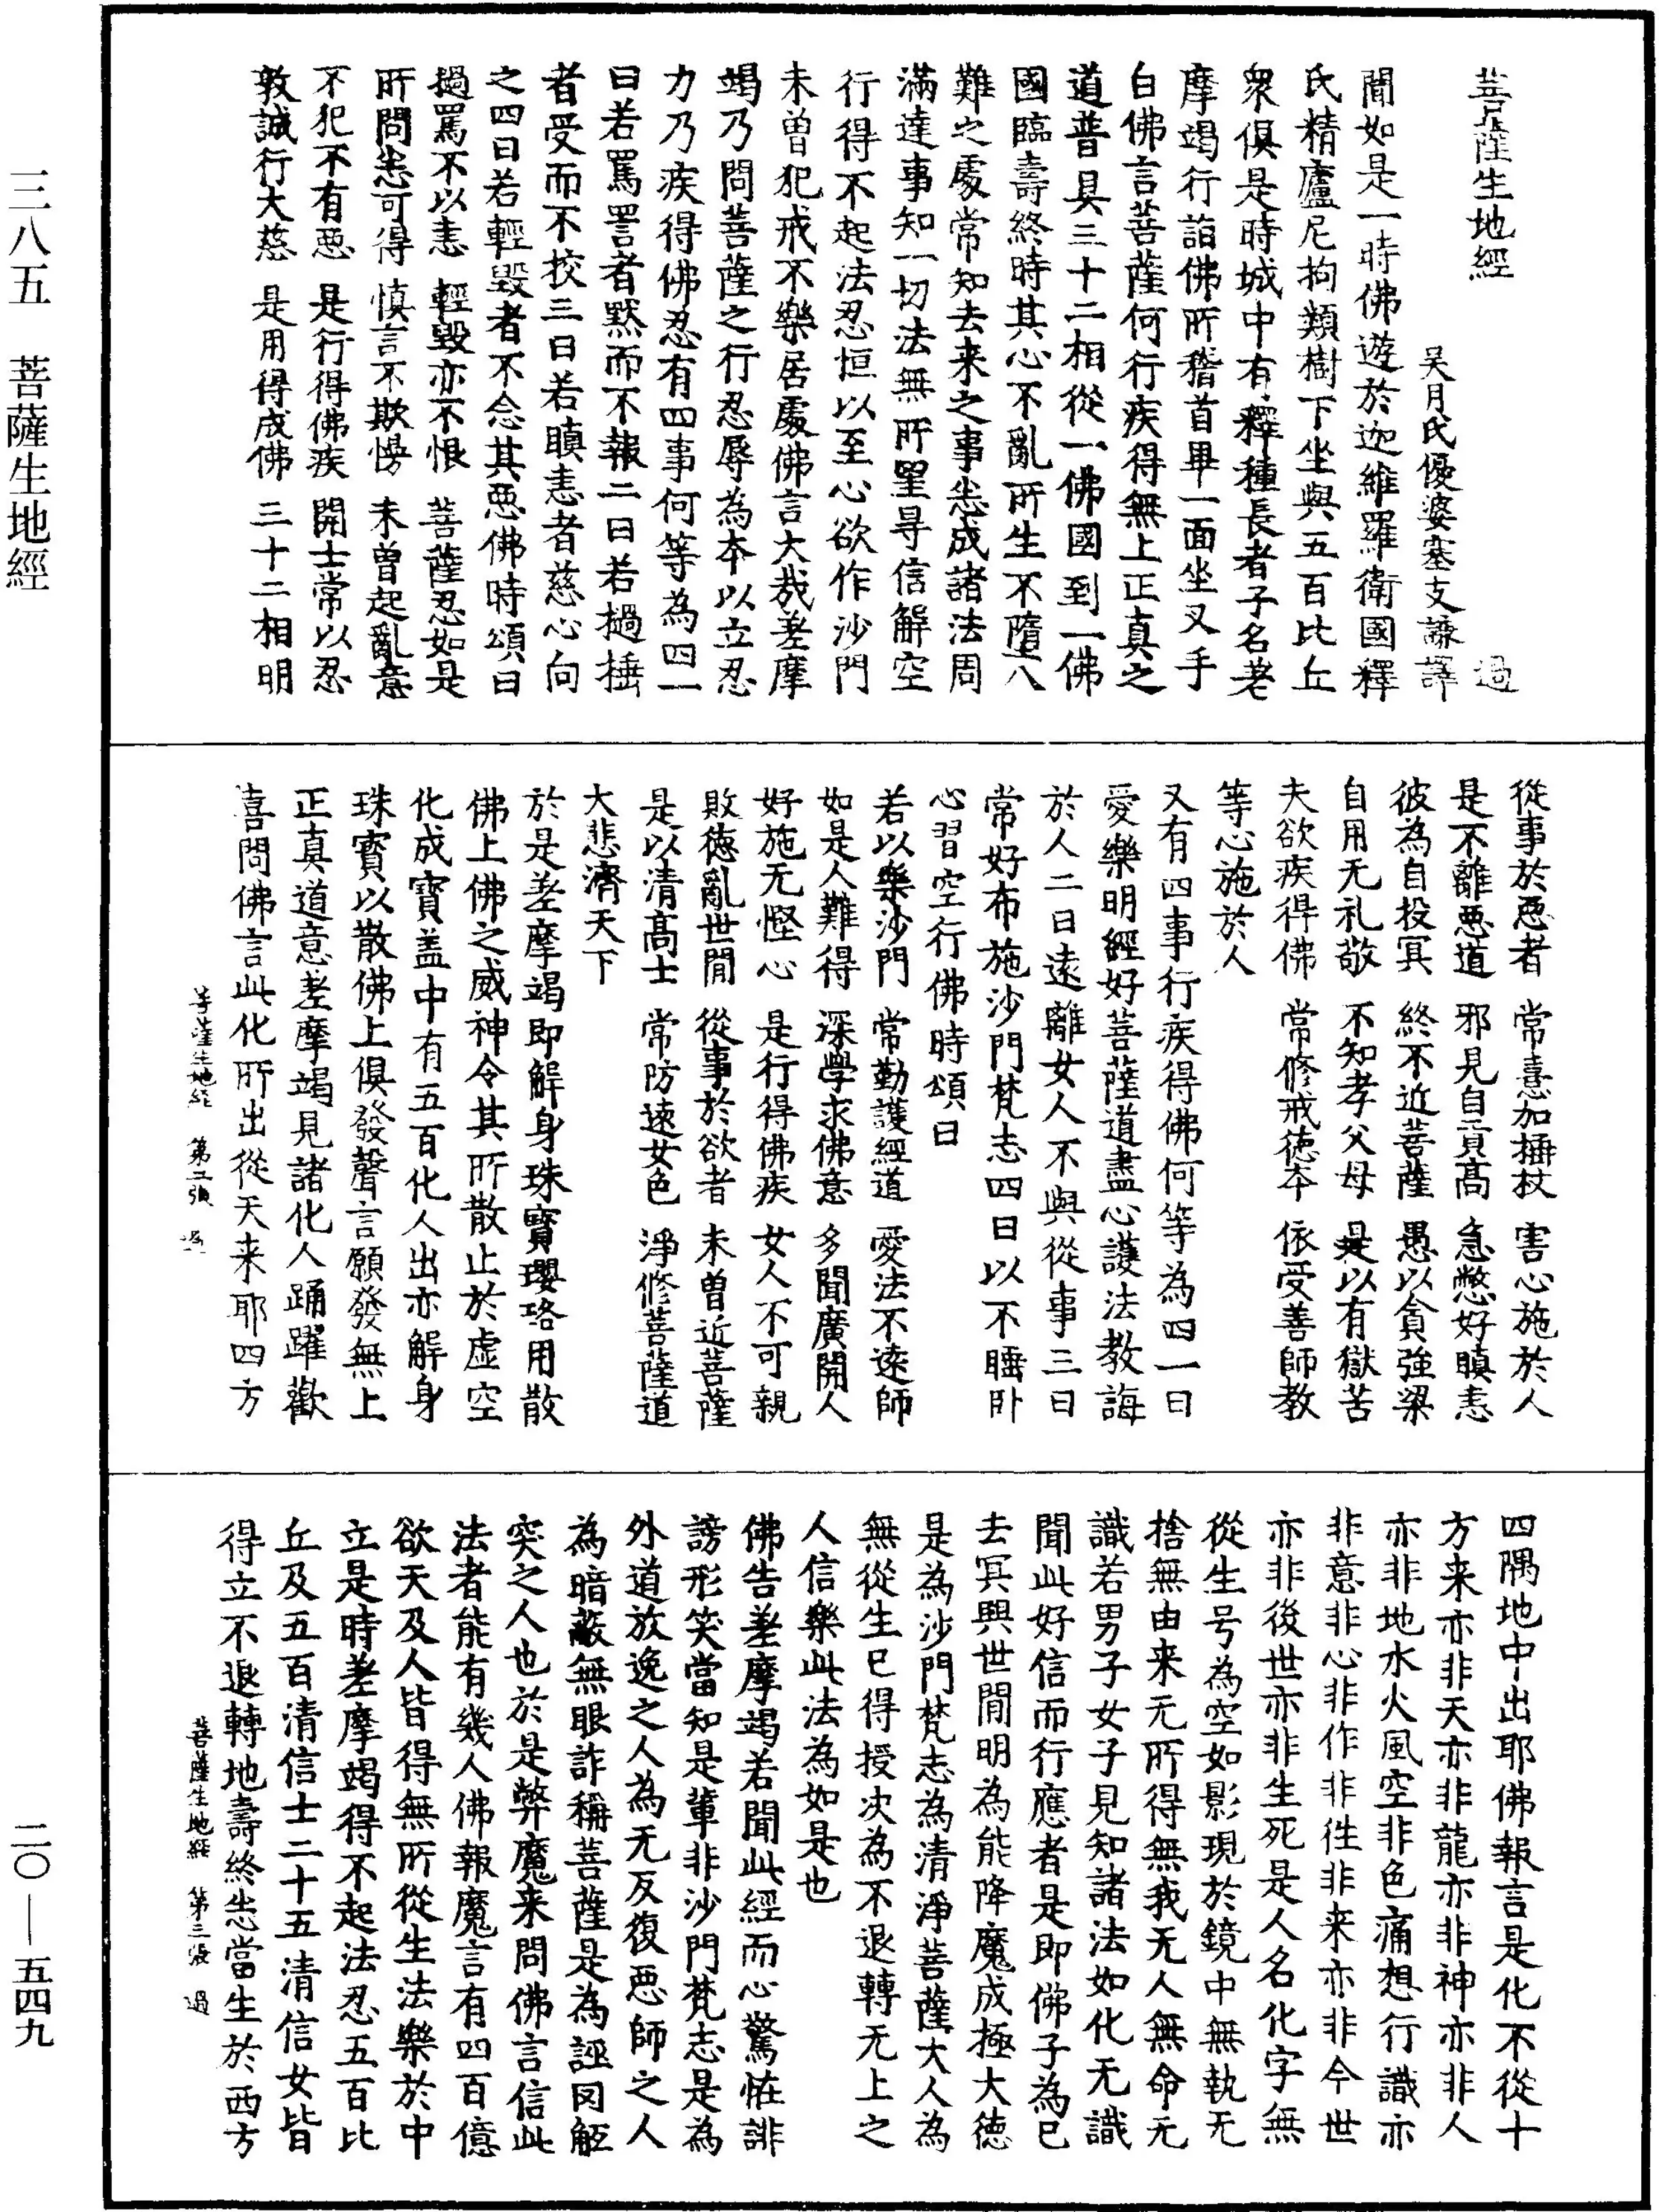 三八五　菩薩生地經
二〇—五四九
菩薩生地經　過
吴月氏優婆塞支謙譯
聞如是一時佛遊於迦維羅衛國釋
氏精廬尼拘類樹下坐與五百比丘
衆俱是時城中有釋種長者子名差
摩竭行詣佛所稽首畢一面坐叉手
白佛言菩薩何行疾得無上正真之
道普具三十二相從一佛國到一佛
國臨壽終時其心不亂所生不墮八
難之處常知去来之事悉成諸法周
滿達事知一切法無所罣㝵信解空
行得不起法忍恒以至心欲作沙門
未曾犯戒不樂居處佛言大哉差摩
竭乃問菩薩之行忍辱為本以立忍
力乃疾得佛忍有四事何等為四一
曰若罵詈者默而不報二曰若撾捶
者受而不挍三曰若瞋恚者慈心向
之四曰若輕毀者不念其惡佛時頌曰
撾罵不以恚　輕毀亦不恨　菩薩忍如是
所問悉可得　慎言不欺慢　未曾起亂意
不犯不有惡　是行得佛疾　開士常以忍
敦誠行大慈　是用得成佛　三十二相明
從事於惡者　常憙加捶杖　害心施於人
是不離惡道　邪見自貢高　急憋好瞋恚
彼為自投冥　終不近菩薩　愚以貪強梁
自用无礼敬　不知孝父母　是以有獄苦
夫欲疾得佛　常修戒德本　依受善師教
等心施於人
又有四事行疾得佛何等為四一曰
愛樂明經好菩薩道盡心護法教誨
於人二曰遠離女人不與從事三曰
常好布施沙門梵志四曰以不睡卧
心習空行佛時頌曰
若以樂沙門　常勤護經道　愛法不遠師
如是人難得　深學求佛意　多聞廣開人
好施无慳心　是行得佛疾　女人不可親
敗德亂世間　從事於欲者　未曾近菩薩
是以清高士　常防遠女色　淨修菩薩道
大悲濟天下
於是差摩竭即解身珠寶瓔珞用散
佛上佛之威神令其所散止於虛空
化成寶盖中有五百化人出亦解身
珠寶以散佛上俱發聲言願發無上
正真道意差摩竭見諸化人踊躍歡
喜問佛言此化所出從天来耶四方
菩薩生地經　第二張　過
四隅地中出耶佛報言是化不從十
方来亦非天亦非龍亦非神亦非人
亦非地水火風空非色痛想行識亦
非意非心非作非徃非来亦非今世
亦非後世亦非生死是人名化字無
從生号為空如影現於鏡中無執无
捨無由来无所得無我无人無命无
識若男子女子見知諸法如化无識
聞此好信而行應者是即佛子為已
去冥興世間明為能降魔成極大德
是為沙門梵志為清淨菩薩大人為
無從生已得授決為不退轉无上之
人信樂此法為如是也
佛告差摩竭若聞此經而心驚恠誹
謗形笑當知是輩非沙門梵志是為
外道放逸之人為无反復惡師之人
為暗蔽無眼詐稱菩薩是為誣罔觝
突之人也於是弊魔来問佛言信此
法者能有幾人佛報魔言有四百億
欲天及人皆得無所從生法樂於中
立是時差摩竭得不起法忍五百比
丘及五百清信士二十五清信女皆
得立不退轉地壽終悉當生於西方
菩薩生地經　第三張　過